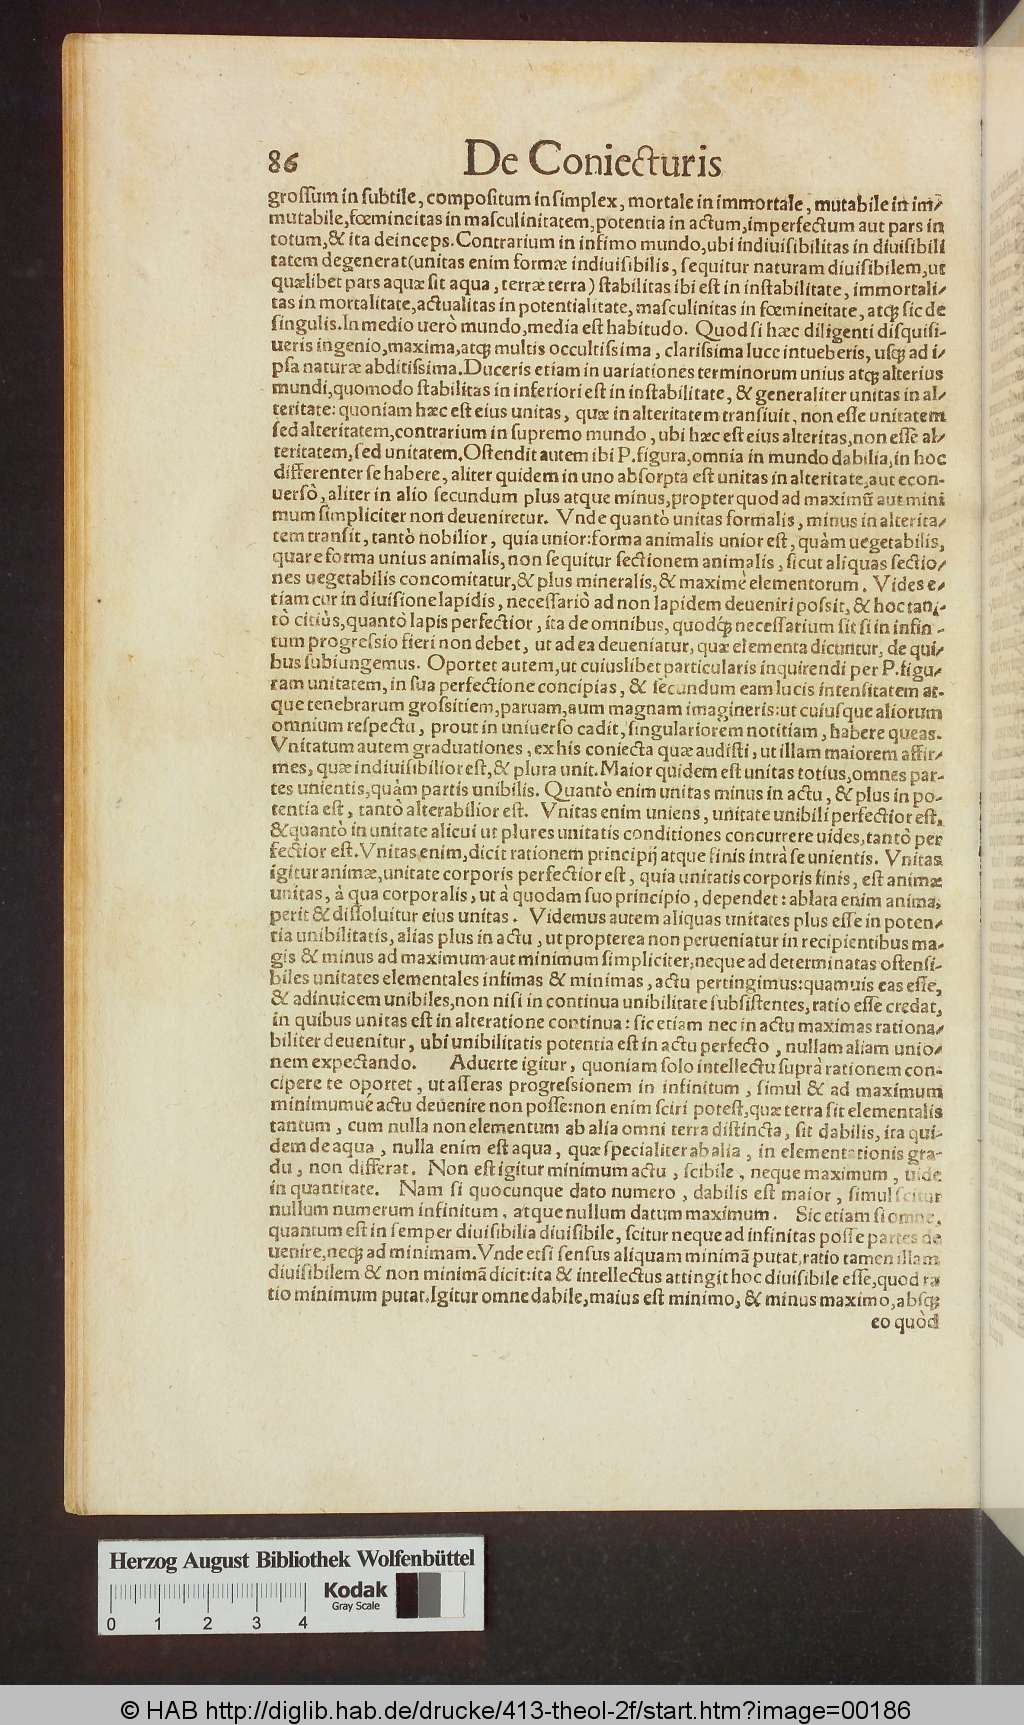 86 De Coniecturis
grossum in subtile, compositum in simplex, mortale in immortale, mutabile in im/
mutabile, fœmineitas in masculinitatem, potentia in actum, imperfectum aut pars in
totum, & ita deinceps. Contrarium in infimo mundo, ubi indiuisibilitas in diuisibili
tatem degenerat (unitas enim formæ indiuisibilis, sequitur naturam diuisibilem, ut
quælibet pars aquæ sit aqua, terræ terra) stabilitas ibi est in instabilitate, immortali/
tas in mortalitate, actualitas in potentialitate, masculinitas in fœmineitate, atq; sic de
singulis. In medio uerò mundo, media est habitudo. Quod si hæc diligenti disquisi-
ueris ingenio, maxima, atq; multis occultissima, clarissima luce intueberis, usq; ad i/
psa naturæ abditissima. Duceris etiam in uariationes terminorum unius atq; alterius
mundi, quomodo stabilitas in inferiori est in instabilitate, & generaliter unitas in al/
teritate: quoniam hæc est eius unitas, quæ in alteritatem transiuit, non esse unitatem
sed alteritatem, contrarium in supremo mundo, ubi hæc est eius alteritas, non esse al/
teritatem, sed unitatem. Ostendit autem ibi P. figura, omnia in mundo dabilia, in hoc
differenter se habere, aliter quidem in uno absorpta est unitas in alteritate, aut econ-
uersò, aliter in alio secundum plus atque minus, propter quod ad maximũ aut mini
mum simpliciter non deueniretur. Vnde quantò unitas formalis, minus in alterita/
tem transit, tantò nobilior, quia unior: forma animalis unior est, quàm uegetabilis,
quare forma unius animalis, non sequitur sectionem animalis, sicut aliquas sectio/
nes uegetabilis concomitatur, & plus mineralis, & maximè elementorum. Vides e/
tiam cur in diuisione lapidis, necessariò ad non lapidem deueniri possit, & hoc tan/
tò citiùs, quantò lapis perfectior, ita de omnibus, quodq; necessarium sit si in infin-
tum progressio fieri non debet, ut ad ea deueniatur, quæ elementa dicuntur, de qui/
bus subiungemus. Oportet autem, ut cuiuslibet particularis inquirendi per P. figu/
ram unitatem, in sua perfectione concipias, & secundum eam lucis intensitatem at-
que tenebrarum grossitiem, paruam, aum magnam imagineris: ut cuiusque aliorum
omnium respectu, prout in uniuerso cadit, singulariorem notitiam, habere queas.
Vnitatum autem graduationes, ex his coniecta quæ audisti, ut illam maiorem affir/
mes, quæ indiuisibilior est, & plura unit. Maior quidem est unitas totius, omnes par-
tes unientis, quàm partis unibilis. Quantò enim unitas minus in actu, & plus in po-
tentia est, tantò alterabilior est. Vnitas enim uniens, unitate unibili perfectior est,
& quantò in unitate alicui ut plures unitatis conditiones concurrere uides, tantò per
fectior est. Vnitas enim, dicit rationem principij atque finis intrà se unientis. Vnitas
igitur animæ, unitate corporis perfectior est, quia unitatis corporis finis, est animæ
unitas, à qua corporalis, ut à quodam suo principio, dependet: ablata enim anima,
perit & dissoluitur eius unitas. Videmus autem aliquas unitates plus esse in poten/
tia unibilitatis, alias plus in actu, ut propterea non perueniatur in recipientibus ma-
gis & minus ad maximum aut minimum simpliciter, neque ad determinatas ostensi-
biles unitates elementales infimas & minimas, actu pertingimus: quamuis eas esse,
& adinuicem unibiles, non nisi in continua unibilitate subsistentes, ratio esse credat,
in quibus unitas est in alteratione continua: sic etiam nec in actu maximas rationa/
biliter deuenitur, ubi unibilitatis potentia est in actu perfecto, nullam aliam unio/
nem expectando. Aduerte igitur, quoniam solo intellectu suprà rationem con-
cipere te oportet, ut asseras progressionem in infinitum, simul & ad maximum
minimumué actu deuenire non posse: non enim sciri potest, quæ terra sit elementalis
tantum, cum nulla non elementum ab alia omni terra distincta, sit dabilis, ita qui-
dem de aqua, nulla enim est aqua, quæ specialiter ab alia, in elementationis gra-
du, non differat. Non est igitur minimum actu, scibile, neque maximum, uide
in quantitate. Nam si quocunque dato numero, dabilis est maior, simul scitur
nullum numerum infinitum, atque nullum datum maximum. Sic etiam si omne,
quantum est in semper diuisibilia diuisibile, scitur neque ad infinitas posse partes de
uenire, neq; ad minimam. Vnde etsi sensus aliquam minimã putat, ratio tamen illam
diuisibilem & non minimã dicit: ita & intellectus attingit hoc diuisibile esse, quod ra
tio minimum putat. Igitur omne dabile, maius est minimo, & minus maximo, absq;
eo quòd
Herzog August Bibliothek Wolfenbüttel
Kodak
Gray Scale
0 1 2 3 4
© HAB http://diglib.hab.de/drucke/413-theol-2f/start.htm?image=00186